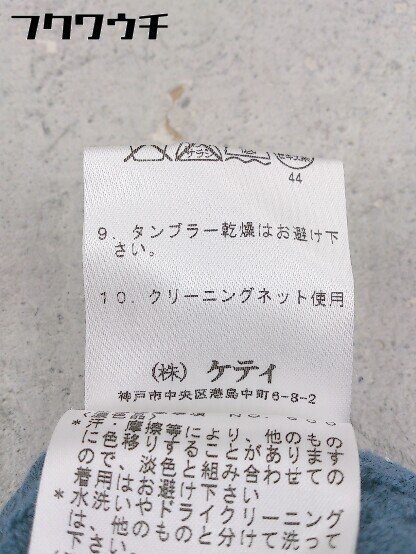 フクワウチ
サラシ
セキユ系
44
9. タンブラー乾燥はお避け下
さい。
10. クリーニングネット使用
(株) ケテイ
神戸市中央区港島中町6-8-2
*汗・摩擦等により、他のもの
に色移りすることがありますの
ので、淡色と組み合わせての
着用はお避け下さい
*水洗いやドライクリーニング
は、他のものと分けて洗って
下さい